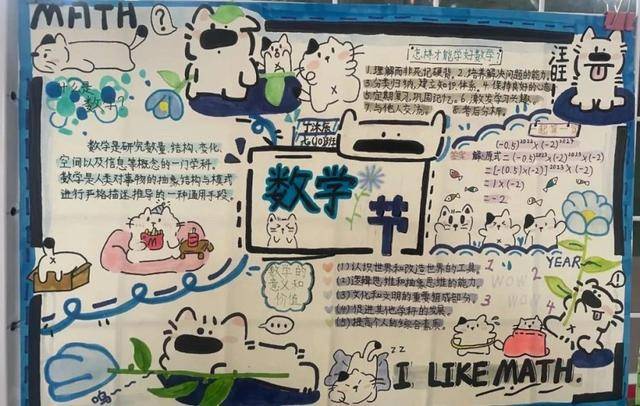 MATH
什么是
数学?
数学是研究数量、结构、变化、
空间以及信息等概念的一门学科。
数学是人类对事物的抽象结构与模式
进行严格描述、推导的一种通用手段。
怎样才能学好数学?
1.理解而非死记硬背。2.培养解决问题的能力。
3.分类归纳,建立知识体系。4.保持良好的心态
5.定期复习,巩固记忆。6.激发学习兴趣。
7.与他人交流。
汪
汪
(-0.5)²⁰²²×(-2)²⁰²³
解:原式=(-0.5)²⁰²²×(-2)²⁰²³
=[-(0.5)×(-2)]²⁰²²×(-2)
=1×(-2)
=-2
数学
节
数学的
意义和
价值
(1)认识世界和改造世界的工具。
(2)逻辑思维和抽象思维的能力。
(3)文化和文明的重要组成部分。
(4)促进其他学科的发展。
(5)提高个人的综合素养。
1
2
3
4
WOW
WOW
YEAR
zz
I LIKE MATH.